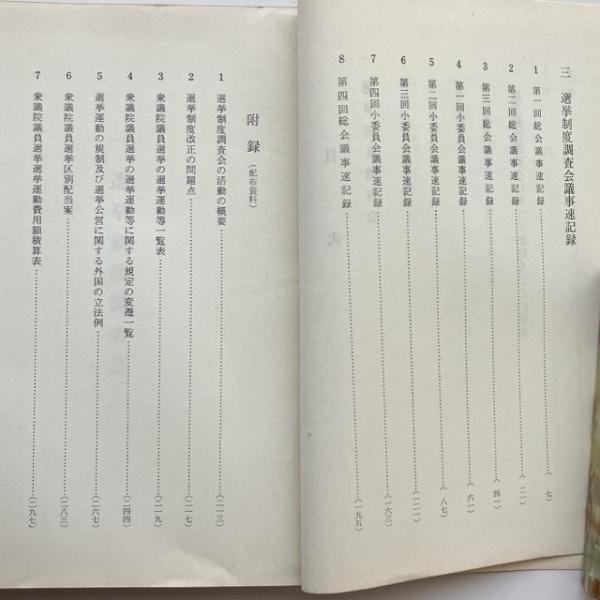 三 選挙制度調査会議事速記録
1 第一回総会議事速記録……(七)
2 第二回総会議事速記録……(二一)
3 第三回総会議事速記録……(四一)
4 第一回小委員会議事速記録……(六一)
5 第二回小委員会議事速記録……(八七)
6 第三回小委員会議事速記録……(一二一)
7 第四回小委員会議事速記録……(一六三)
8 第四回総会議事速記録……(一九五)
附録(配布資料)
1 選挙制度調査会の活動の概要……(二一三)
2 選挙制度改正の問題点……(二一七)
3 衆議院議員選挙の選挙運動等一覧表……(二一九)
4 衆議院議員選挙の選挙運動等に関する規定の変遷一覧……(二四四)
5 選挙運動の規制及び選挙公営に関する外国の立法例……(二六七)
6 衆議院議員選挙区別配当案……(二八三)
7 衆議院議員選挙選挙運動費用額積算表……(二九七)